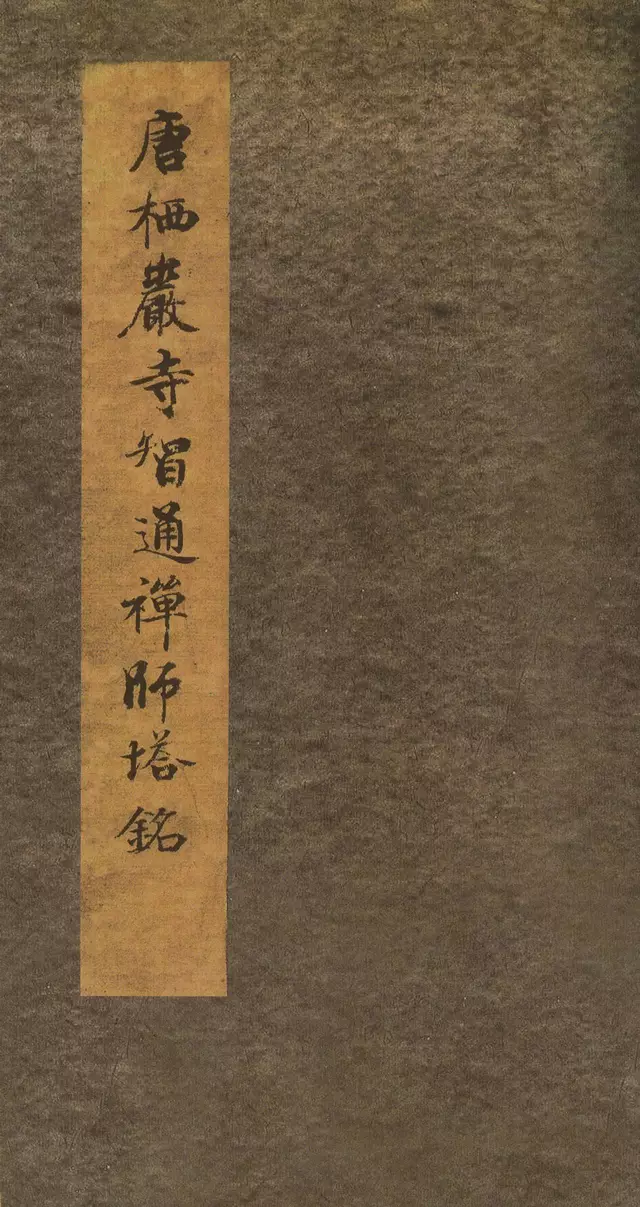 唐栖巖寺智通禅師塔銘